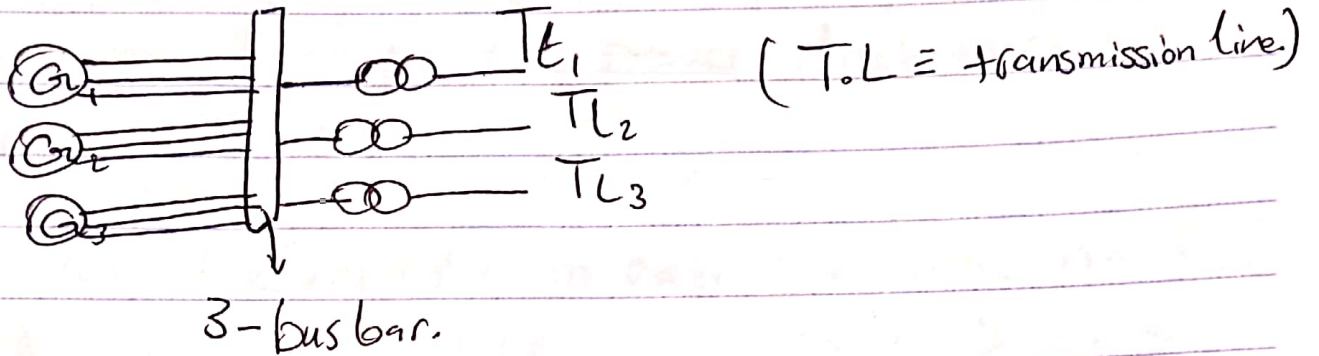 G1
G2
G3
TL1
TL2
TL3
(T.L ≡ transmission line.)
3-bus bar.